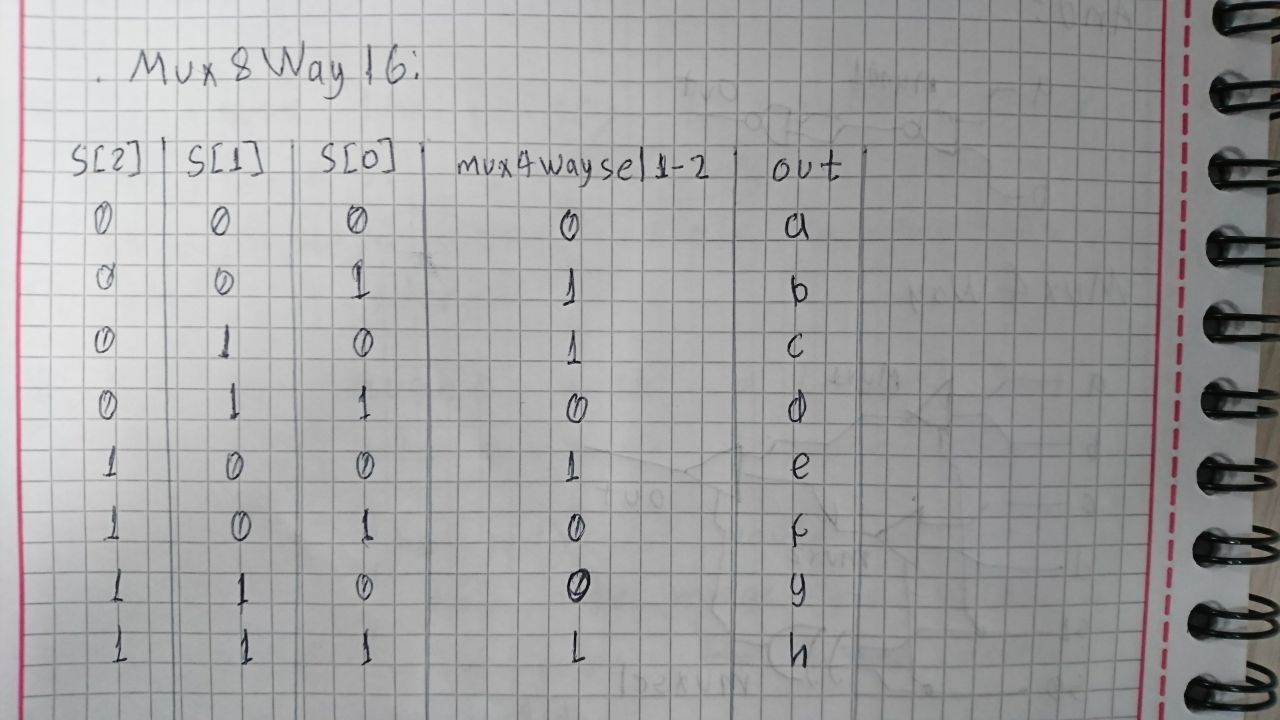 . Mux 8 Way 16:
S[2] | S[1] | S[0] | mux4waysel1-2 | out |
0 0 0 0 a
0 0 1 1 b
0 1 0 1 c
0 1 1 0 d
1 0 0 1 e
1 0 1 0 f
1 1 0 0 g
1 1 1 1 h